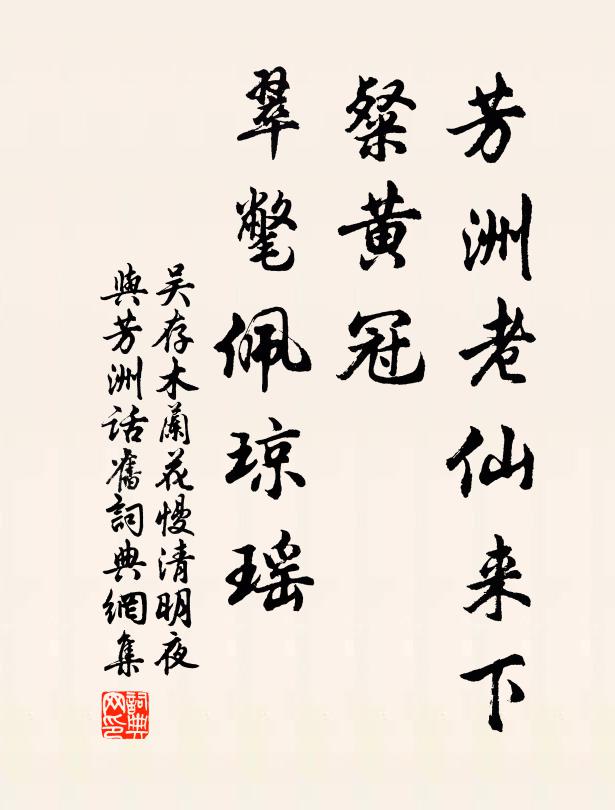 芳洲老仙来下
粲黄冠
翠氅佩琼瑶
吴存木蘭花慢清明夜
與芳洲话舊詞典網集
詞典
网印